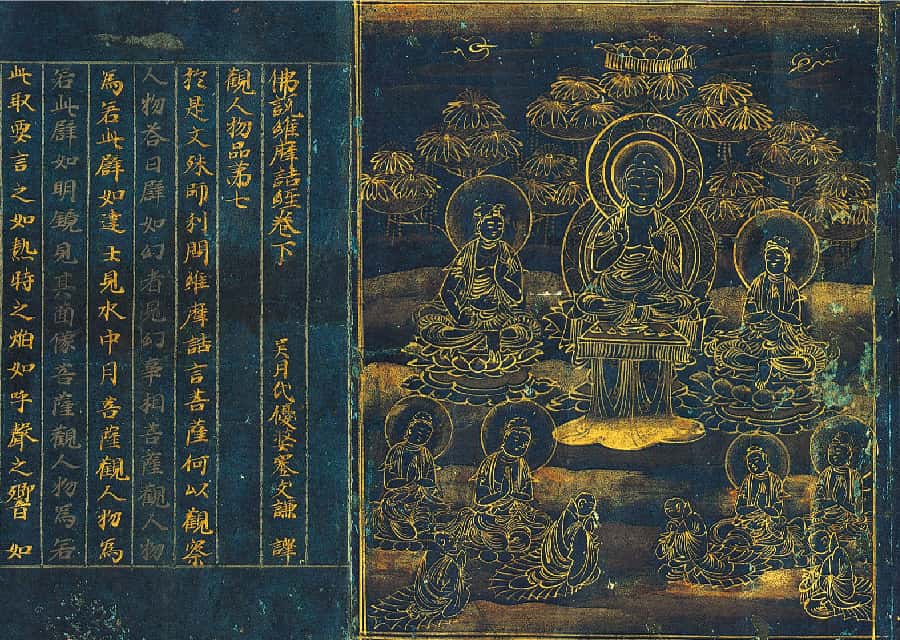 佛說維摩詰經卷下 吳月氏優婆塞支謙譯
觀人物品第七
於是文殊師利問維摩詰言菩薩何以觀察
人物荅曰譬如幻者見幻事相菩薩觀人物
為若此譬如達士見水中月菩薩觀人物為
若此譬如明鏡見其面像菩薩觀人物為若
此取要言之如熱時之焰如呼聲之響如